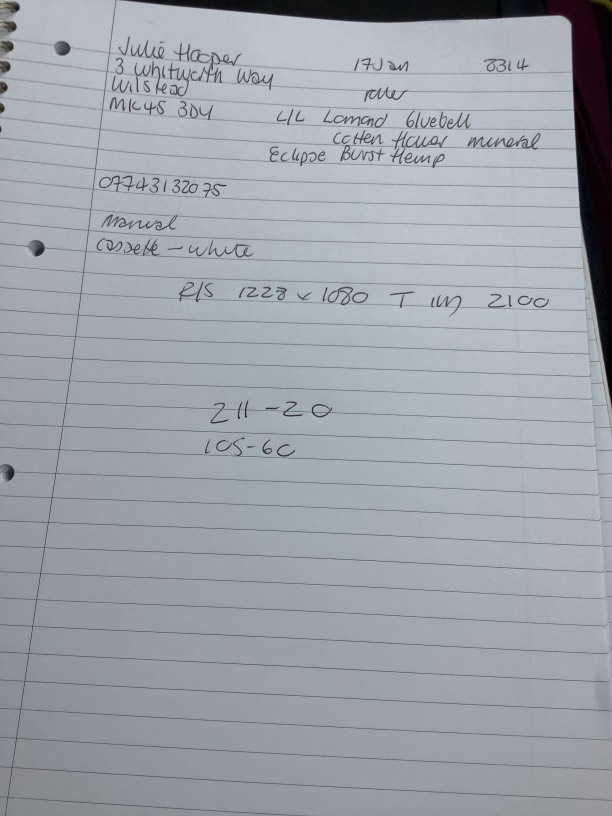 Julie Hooper 17 Jan 8314
3 Whitworth Way
Wilstead roller
MK45 3DY L/L Lomond bluebell
Cotten flower mineral
Eclipse Burst Hemp
07743132075
Manual
Cassette - white
R/S 1228 x 1080 T 2100
211-20
105-60